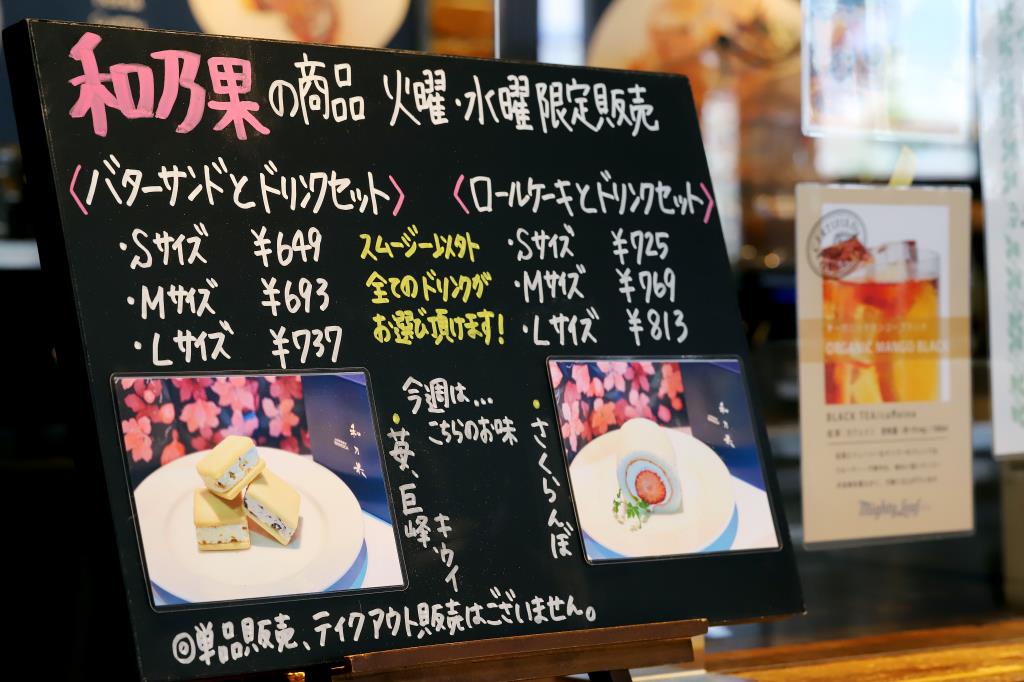 和乃果の商品 火曜・水曜限定販売
〈バターサンドとドリンクセット〉
・Sサイズ ¥649
・Mサイズ ¥693
・Lサイズ ¥737
スムージー以外
全てのドリンクが
お選び頂けます!
〈ロールケーキとドリンクセット〉
・Sサイズ ¥725
・Mサイズ ¥769
・Lサイズ ¥813
今週は...
こちらのお味
・苺、巨峰、キウイ
・さくらんぼ
和乃果
和乃果
◎単品販売、テイクアウト販売はございません。
ORGANIC MANGO BLACK
BLACK TEA/caffeine
Mighty Leaf